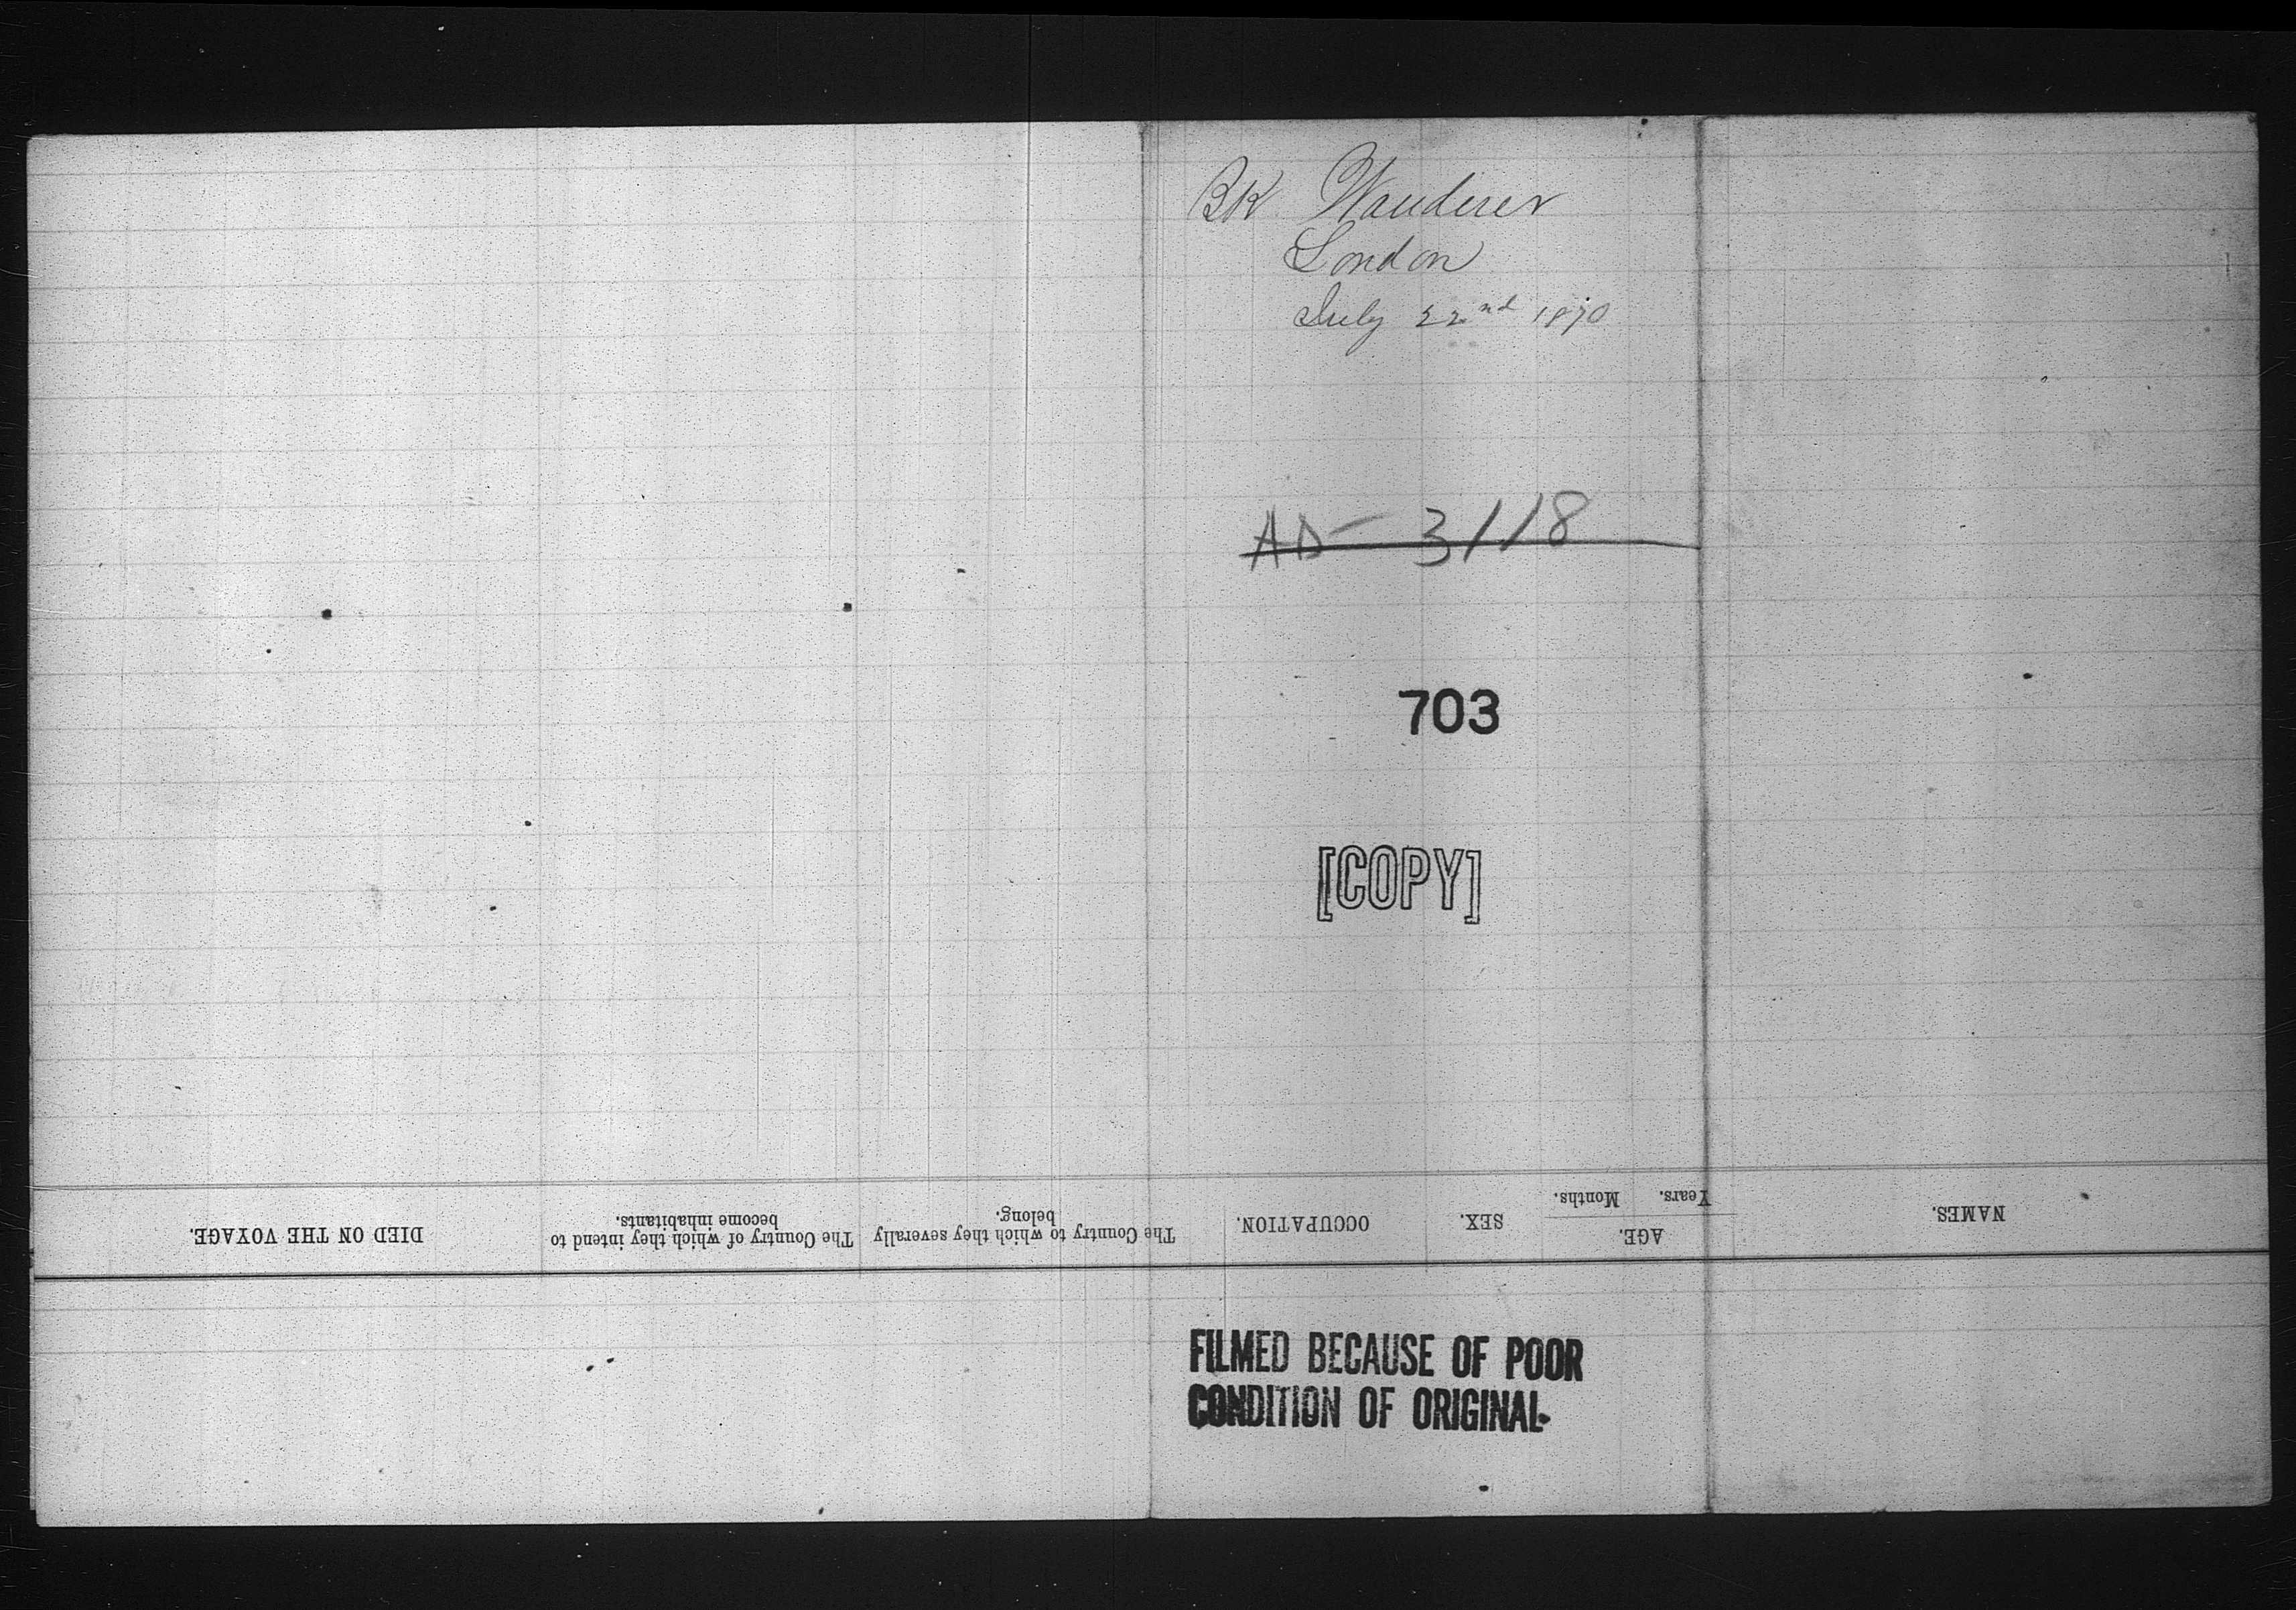 BK Wanderer
London
July 22nd 1870
AD- 3118
703
[COPY]
NAMES.
AGE.
Years. Months.
SEX.
OCCUPATION.
The Country to which they severally
belong.
The Country of which they intend to
become inhabitants.
DIED ON THE VOYAGE.
FILMED BECAUSE OF POOR
CONDITION OF ORIGINAL